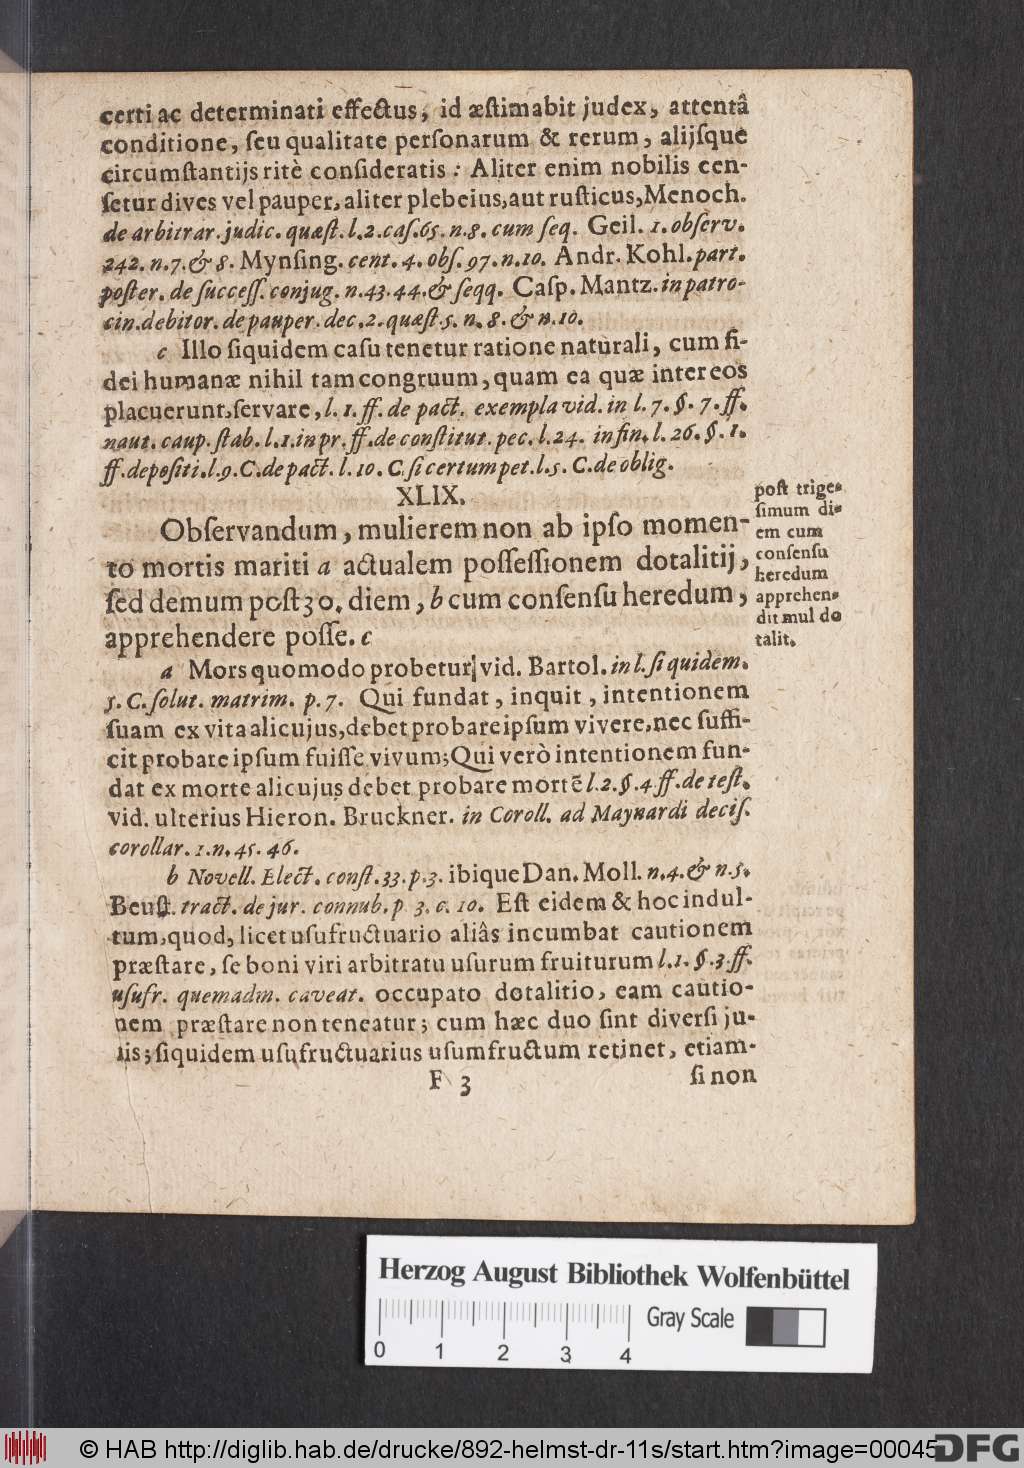 certi ac determinati effectus, id æstimabit judex, attentâ
conditione, seu qualitate personarum & rerum, alijsque
circumstantijs ritè consideratis: Aliter enim nobilis cen-
setur dives vel pauper, aliter plebeius, aut rusticus, Menoch.
de arbitrar. judic. quæst. l. 2. cas. 65. n. 8. cum seq. Geil. 1. observ.
242. n. 7. & 8. Mynsing. cent. 4. obs. 97. n. 10. Andr. Kohl. part.
poster. de success. conjug. n. 43. 44. & seqq. Casp. Mantz. in patro-
cin. debitor. de pauper. dec. 2. quæst. 5. n. 8. & n. 10.
c Illo siquidem casu tenetur ratione naturali, cum fi-
dei humanæ nihil tam congruum, quam ea quæ inter eos
placuerunt, servare, l. 1. ff. de pact. exempla vid. in l. 7. §. 7. ff.
naut. caup. stab. l. 1. in pr. ff. de constitut. pec. l. 24. in fin. l. 26. §. 1.
ff. depositi. l. 9. C. de pact. l. 10. C. si certum pet. l. 5. C. de oblig.
XLIX.
Observandum, mulierem non ab ipso momen-
to mortis mariti a actualem possessionem dotalitij,
sed demum post 30. diem, b cum consensu heredum,
apprehendere posse. c
post trige-
simum di-
em cum
consensu
heredum
apprehen-
dit mul do
talit.
a Mors quomodo probetur vid. Bartol. in l. si quidem.
5. C. solut. matrim. p. 7. Qui fundat, inquit, intentionem
suam ex vita alicujus, debet probare ipsum vivere, nec suffi-
cit probare ipsum fuisse vivum; Qui verò intentionem fun-
dat ex morte alicujus debet probare mortē l. 2. §. 4. ff. de test.
vid. ulterius Hieron. Bruckner. in Coroll. ad Maynardi decis.
corollar. 1. n. 45. 46.
b Novell. Elect. const. 33. p. 3. ibique Dan. Moll. n. 4. & n. 5.
Beust. tract. de jur. connub. p 3. c. 10. Est eidem & hoc indul-
tum, quod, licet usufructuario aliâs incumbat cautionem
præstare, se boni viri arbitratu usurum fruiturum l. 1. §. 3. ff.
usufr. quemadm. caveat. occupato dotalitio, eam cautio-
nem præstare non teneatur; cum hæc duo sint diversi ju-
ris; siquidem usufructuarius usumfructum retinet, etiam-
F 3
si non
Herzog August Bibliothek Wolfenbüttel
Gray Scale
0 1 2 3 4
© HAB http://diglib.hab.de/drucke/892-helmst-dr-11s/start.htm?image=00045
DFG